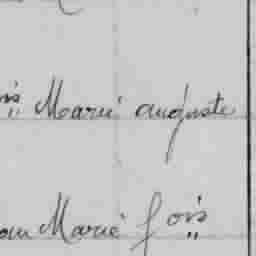 Marie auguste
Marie fois